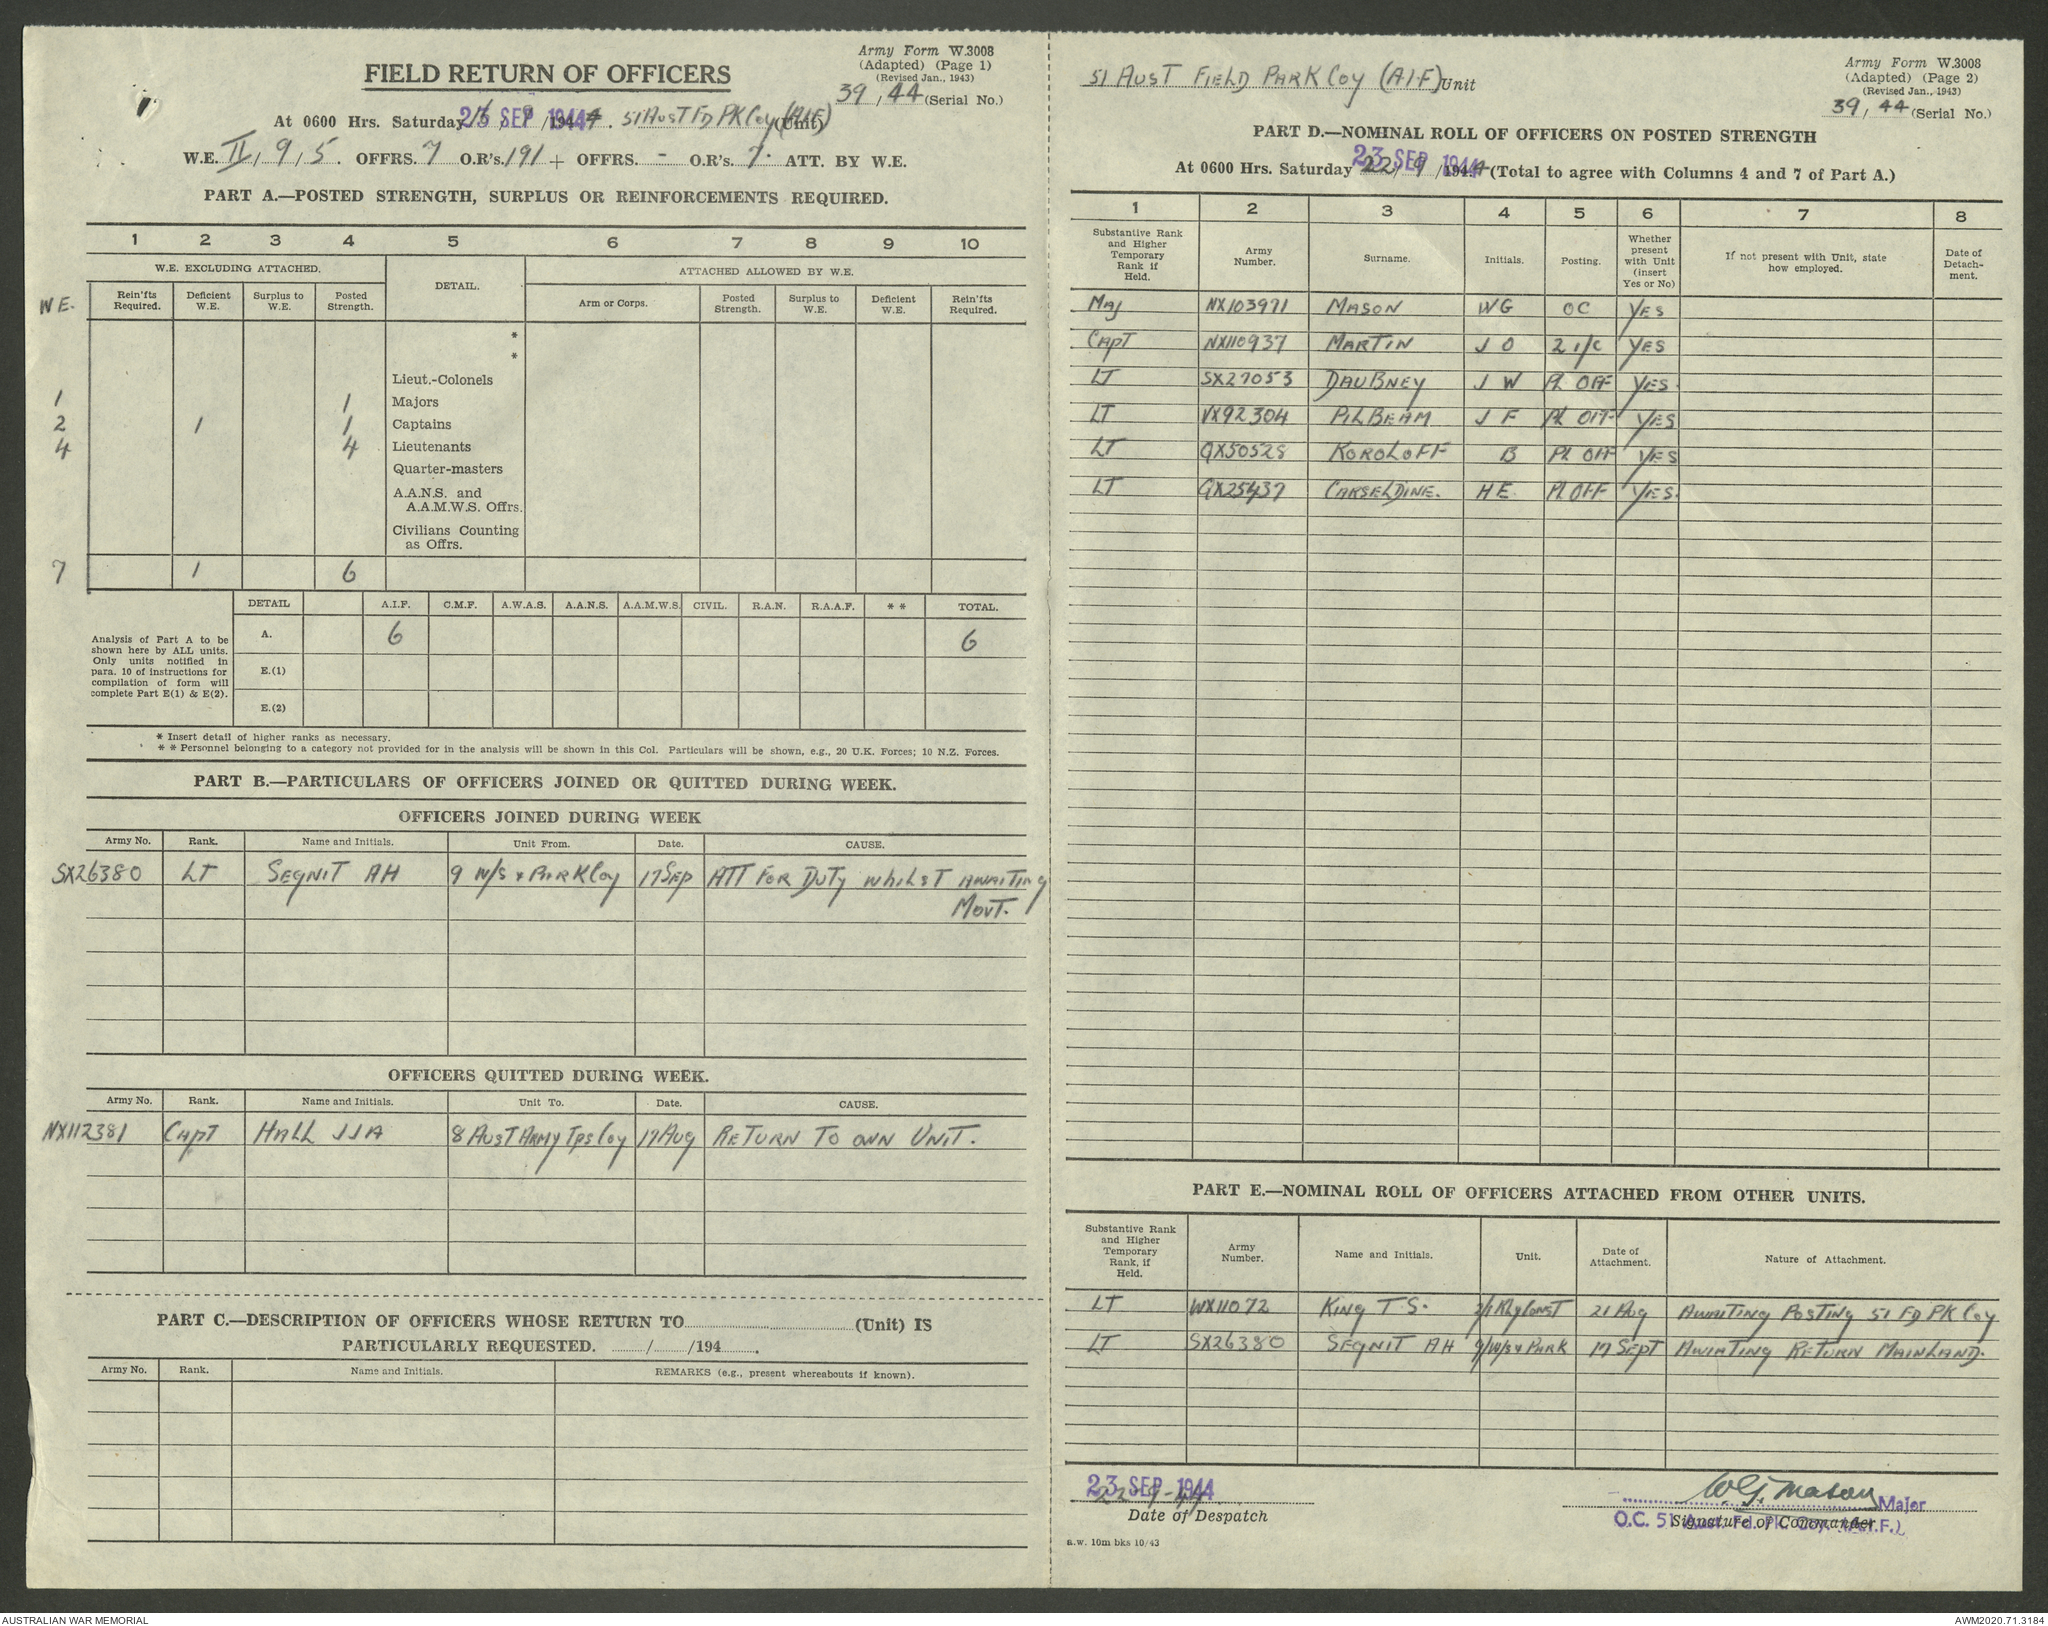 Army Form W.3008
(Adapted) (Page 1)
(Revised Jan., 1943)
39 / 44 (Serial No.)
FIELD RETURN OF OFFICERS
At 0600 Hrs. Saturday 23 SEP 1944 . 51 AUST FD PK Coy (AIF) (Unit)
W.E. II / 9 / 5. OFFRS. 7 O.R's. 191 + OFFRS. - O.R's. 7. ATT. BY W.E.
PART A.—POSTED STRENGTH, SURPLUS OR REINFORCEMENTS REQUIRED.
1 2 3 4 5 6 7 8 9 10
W.E. EXCLUDING ATTACHED. DETAIL. ATTACHED ALLOWED BY W.E.
WE. Rein'fts Required. Deficient W.E. Surplus to W.E. Posted Strength. Arm or Corps. Posted Strength. Surplus to W.E. Deficient W.E. Rein'fts Required.
*
*
Lieut.-Colonels
1 1 Majors
2 1 1 Captains
4 4 Lieutenants
Quarter-masters
A.A.N.S. and
A.A.M.W.S. Offrs.
Civilians Counting
as Offrs.
7 1 6
DETAIL A.I.F. C.M.F. A.W.A.S. A.A.N.S. A.A.M.W.S. CIVIL. R.A.N. R.A.A.F. * * TOTAL.
Analysis of Part A to be shown here by ALL units. Only units notified in para. 10 of instructions for compilation of form will complete Part E(1) & E(2).
A. 6 6
E.(1)
E.(2)
* Insert detail of higher ranks as necessary.
* * Personnel belonging to a category not provided for in the analysis will be shown in this Col. Particulars will be shown, e.g., 20 U.K. Forces; 10 N.Z. Forces.
PART B.—PARTICULARS OF OFFICERS JOINED OR QUITTED DURING WEEK.
OFFICERS JOINED DURING WEEK
Army No. Rank. Name and Initials. Unit From. Date. CAUSE.
SX26380 LT SEGNIT AH 9 W/S & PARK Coy 17 SEP ATT FOR DUTY WHILST AWAITING
MOVT.
OFFICERS QUITTED DURING WEEK.
Army No. Rank. Name and Initials. Unit To. Date. CAUSE.
NX112381 CAPT HALL JJA 8 AUST ARMY TPS Coy 17 AUG RETURN TO OWN UNIT.
PART C.—DESCRIPTION OF OFFICERS WHOSE RETURN TO (Unit) IS
PARTICULARLY REQUESTED. / /194 .
Army No. Rank. Name and Initials. REMARKS (e.g., present whereabouts if known).
51 AUST FIELD PARK Coy (A.I.F) Unit
Army Form W.3008
(Adapted) (Page 2)
(Revised Jan., 1943)
39 / 44 (Serial No.)
PART D.—NOMINAL ROLL OF OFFICERS ON POSTED STRENGTH
At 0600 Hrs. Saturday 22/9/1944 23 SEP 1944 (Total to agree with Columns 4 and 7 of Part A.)
1 2 3 4 5 6 7 8
Substantive Rank and Higher Temporary Rank if Held. Army Number. Surname. Initials. Posting. Whether present with Unit (insert Yes or No) If not present with Unit, state how employed. Date of Detachment.
MAJ NX103971 MASON WG OC YES
CAPT NX110937 MARTIN J O 2 I/C YES
LT SX27053 DAUBNEY J W PL OFF YES.
LT VX92304 PILBEAM J F PL OFF YES
LT QX50528 KOROLOFF B PL OFF YES
LT QX25437 CARSELDINE. HE. PL OFF YES.
PART E.—NOMINAL ROLL OF OFFICERS ATTACHED FROM OTHER UNITS.
Substantive Rank and Higher Temporary Rank, if Held. Army Number. Name and Initials. Unit. Date of Attachment. Nature of Attachment.
LT WX11072 KING T.S. 2/1 Rly CONST 21 AUG AWAITING POSTING 51 FD PK Coy.
LT SX26380 SEGNIT AH 9/W/S & PARK 17 SEPT AWIATING RETURN MAINLAND.
23 SEP 1944
22-9-44
Date of Despatch
WG Mason Major
O.C. 51 Aust. Fd. Pk. Coy. (A.I.F.)
Signature of Commander
a.w. 10m bks 10/43
AUSTRALIAN WAR MEMORIAL
AWM2020.71.3184